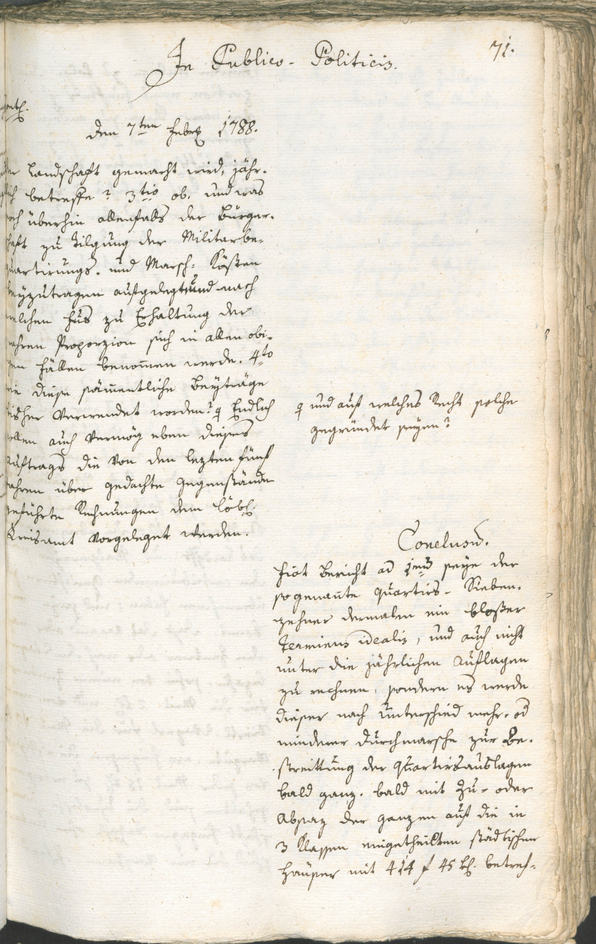 In Publico-Politicis.
71.
den 7ten Febr 1788.
der Landschaft gemacht wird, jähr-
lich betreffe? 3tio ob, und was
noch überhin allenfalls der Bürger-
schaft zu Tilgung der Militarbe-
quartirungs- und Marsch-Kösten
beyzutragen aufgelegt und nach
welchen Fus zu Erhaltung der
wahren Proporzion sich in allen obi-
gen Fällen benommen werde. 4to
wie diese sämentliche Beyträge
bisher verwendet worden? Endlich
sollen auch vermög eben dieses
Auftrags die von den lezten fünf
Jahren über gedachte Gegenstände
geführte Rechnungen dem Löbl:
Kreisamt vorgeleget werden.
und auf welches Recht solche
gegründet seyen?
Conclusũ.
Fiat Bericht ad 1mũ seye der
so genante Quartirs-Sieben-
zehner dermalen ein bloßer
Terminus idealis, und auch nicht
unter die jährlichen Auflagen
zu rechnen, sondern es werde
dieser nach Unterschied mehr- od
minderer Durchmarsche zur Be-
streittung der Quartirsauslagen
bald ganz, bald mit Zu- oder
Absaz der ganzen auf die in
3 Klassen eingetheilten städtischen
Häuser mit 414 f 45 kr. betref-